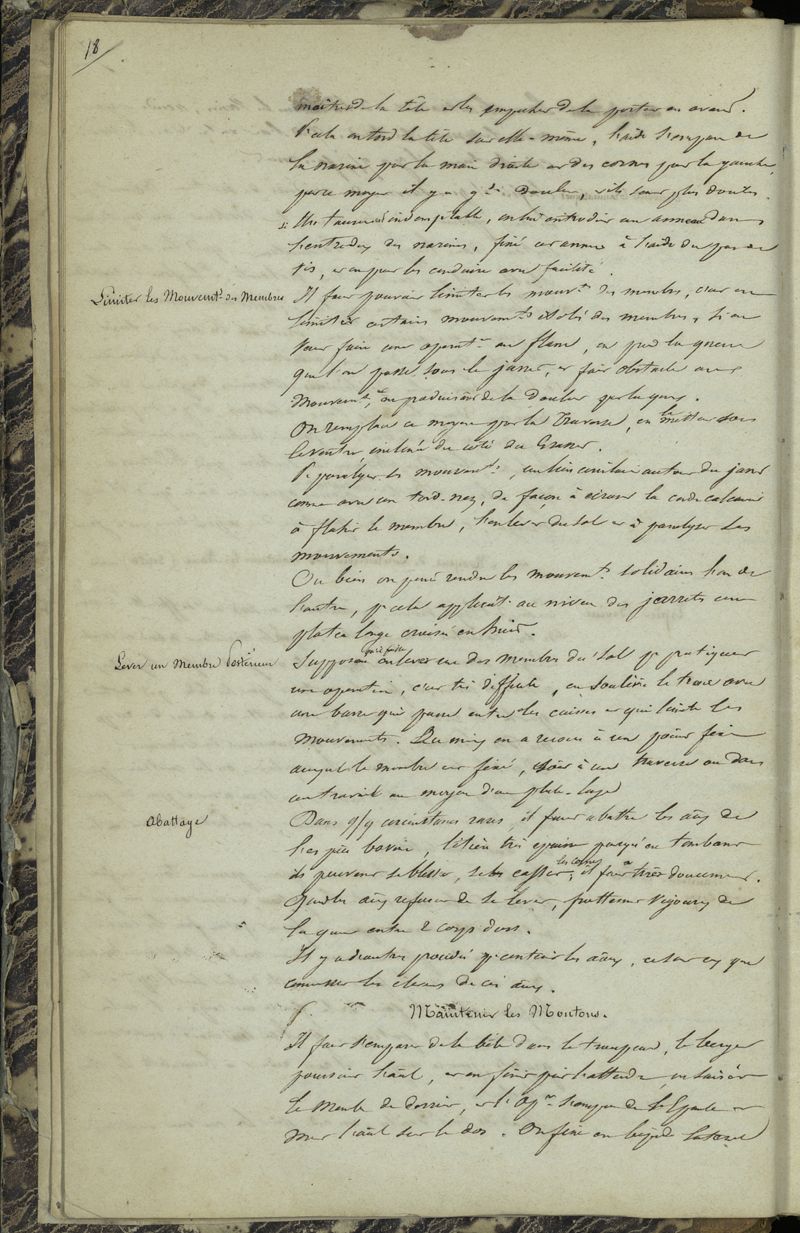 18
maîtres de la tête et les empêcher de la porter en avant.
on tord la tête sur elle-même, l'aide s'empare de
la narine par la main droite et des cornes par la gauche,
par ce moyen il y a douleur, ils sont plus doutés.
Si le taureau est indomptable, on lui introduit un anneau dans
l'entredeux des narines, fixé cet anneau à l'aide du pas de
vis, et on peut les conduire avec facilité.
Limiter les Mouvemts. des Membres
Il faut pouvoir limiter les mouvts. des membres, c'est en
limiter certains mouvemts. isolés des membres, si on
veut faire une opérat. au flanc, on prend la queue
que l'on passe sous le jarret, et fait obstacle aux
mouvemts., en produisant de la douleur par la queue.
On remplace ce moyen par la traverse, en la mettant sous
le ventre, inclinée du côté du
paralyser les mouvemts., un lien circulaire autour du jarret
comme avec un tord-nez, de façon à écraser la corde
à fléchir le membre, l'enlever du sol et à paralyser ses
mouvements.
Ou bien on peut rendre les mouvemts. solidaires l'un de
l'autre, pr cela appliquer au niveau des jarrets une
plate longe croisée en huit.
Lever un Membre Postérieur
Supposons qu'il faille enlever un des membres du sol pr pratiquer
une opération, c'est très difficile, on soulève le train avec
une barre qui passe entre les cuisses et qui limite les
mouvements. on a recours à un point fixe
auquel le membre est fixé, soit à une traverse ou dans
un travail au moyen d'une plate-longe
Abattage
Dans qq circonstances rares, il faut abattre les anx de
l'espèce bovine, litière très épaisse puisqu'en tombant
ils peuvent se blesser, se casser les cornes; il faut très doucement.
Quand les anx refusent de se lever, frottement vigoureux de
la queue entre 2 corps durs.
Il y a d'autres procédés pr contenir les anx, ce sont ceux que
connaissent les éleveurs de ces anx.
Maintenir les Moutons.
Il faut s'emparer de la bête dans le troupeau, le berger
poursuit l'anl, et on finit par l'atteindre, on saisit
le membre de derrière, et l'opr. s'empare de l'épaule et
met l'anl sur le dos. On fixe en